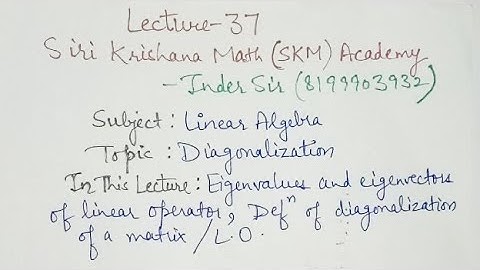 Lecture-37
Siri Krishana Math (SKM) Academy
- Inder Sir (8199903932)
Subject : Linear Algebra
Topic : Diagonalization
In This Lecture : Eigenvalues and eigenvectors
of linear operator, Defⁿ of diagonalization
of a matrix / L.O.